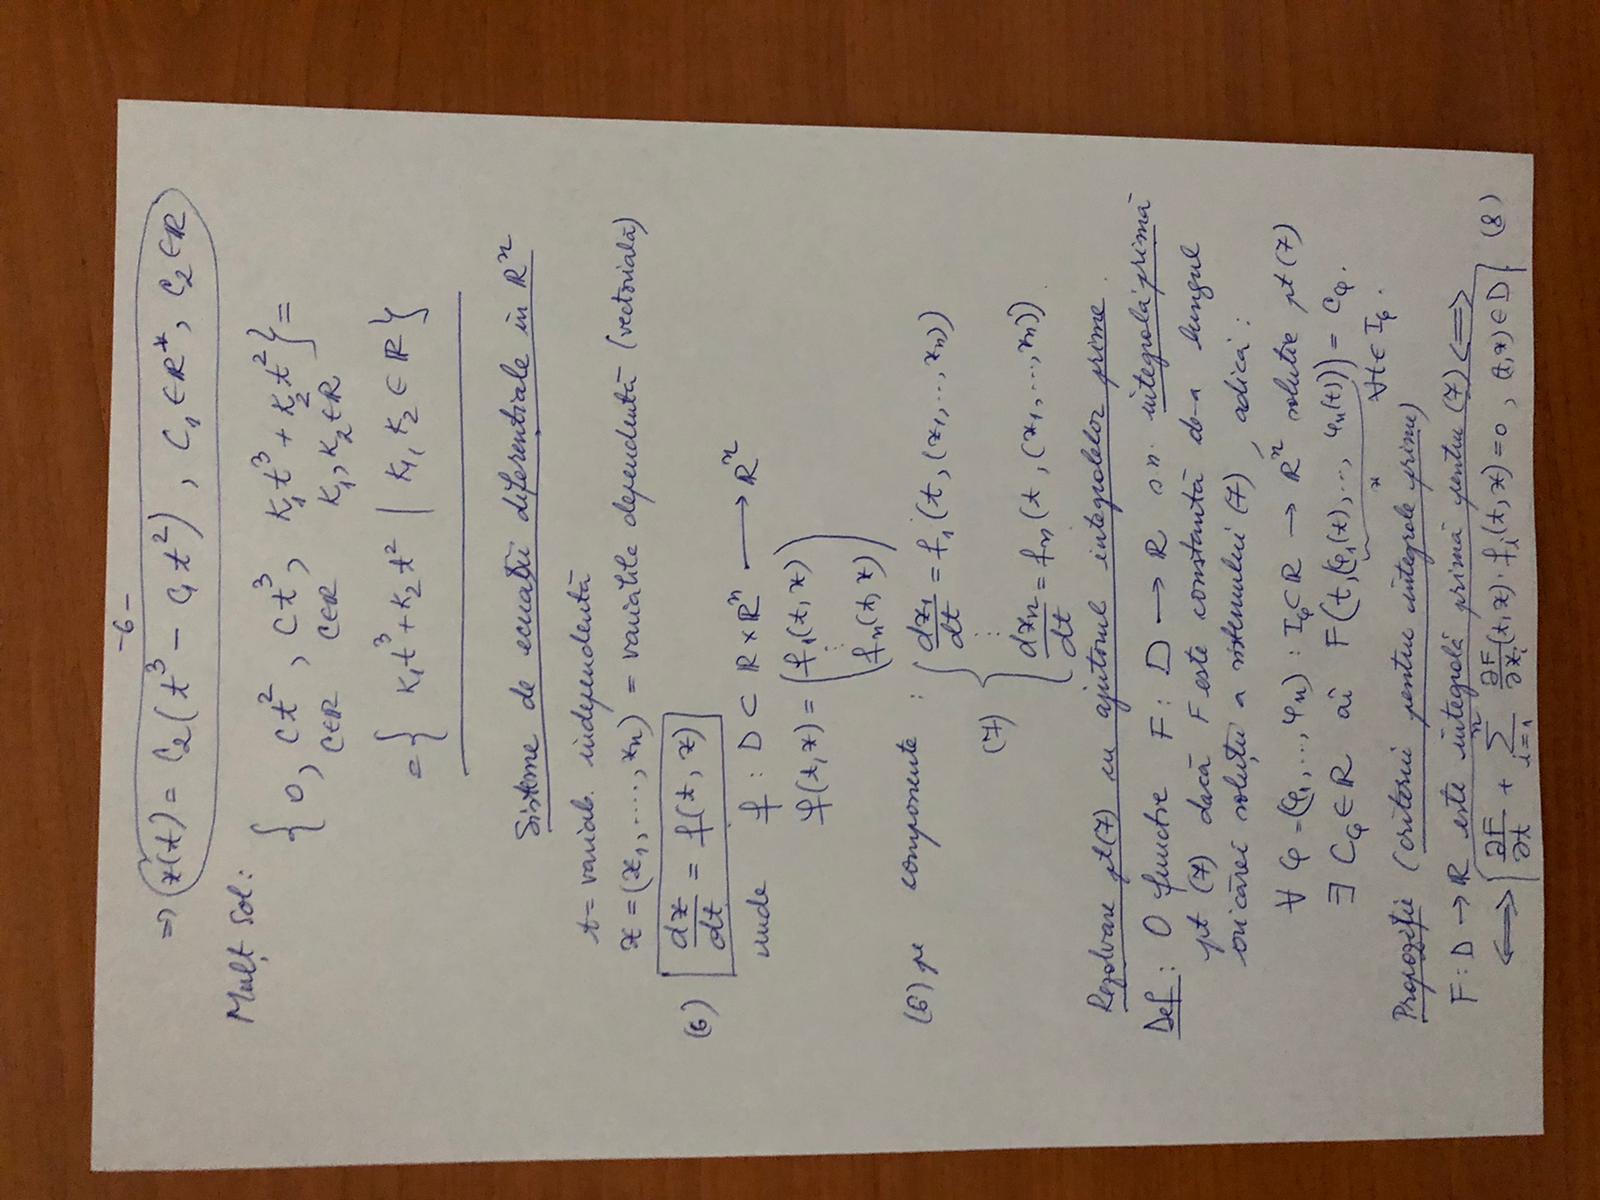 -6-
=> x(t) = C₂(t³ - C₁t²), C₁ ∈ R*, C₂ ∈ R
Mulț Sol: { 0, ct², ct³, k₁t³ + k₂t² } =
c∈R c∈R k₁,k₂∈R
= { k₁t³ + k₂t² | k₁, k₂ ∈ R }
Sisteme de ecuații diferențiale in Rⁿ
t = variab. independentă
x = (x₁, ..., xₙ) = variabile dependentă (vectorială)
(6) dx/dt = f(t, x)
unde f : D ⊂ R×Rⁿ → Rⁿ
f(t,x) = (f₁(t,x)
⋮
fₙ(t,x))
(6) pe componente : { dx₁/dt = f₁(t, (x₁, ..., xₙ))
(7) ⋮
dxₙ/dt = fₙ(t, (x₁, ..., xₙ)).
Rezolvare pt(7) cu ajutorul integralelor prime.
Def: O funcție F: D → R s.n. integrală primă
pt (7) dacă F este constantă de-a lungul
oricărei soluții a sistemului (7), adică:
∀ φ = (φ₁, ..., φₙ) : I_φ ⊂ R → Rⁿ soluție pt (7)
∃ C_φ ∈ R aî F(t, (φ₁(t), ..., φₙ(t))) = C_φ.
x ∀t ∈ I_φ.
Propoziție (criteriu pentru integrale prime)
F: D → R este integrală primă pentru (7) <=>
<=> ∂F/∂t + Σⁿᵢ₌₁ ∂F/∂xᵢ (t,x) · fᵢ(t,x) = 0, (t,x) ∈ D (8)